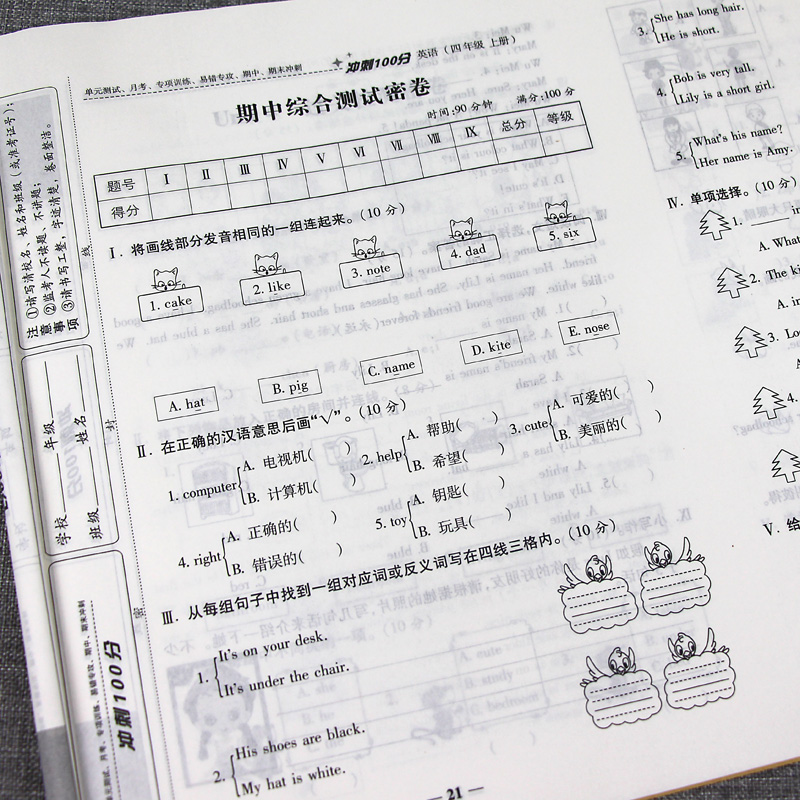 单元测试、月考、专项训练、易错专攻、期中、期末冲刺
冲刺100分 英语（四年级 上册）
期中综合测试密卷
时间:90 分钟 满分:100 分
题号 Ⅰ Ⅱ Ⅲ Ⅳ Ⅴ Ⅵ Ⅶ Ⅷ Ⅸ 总分 等级
得分
Ⅰ. 将画线部分发音相同的一组连起来。(10 分)
1. cake 2. like 3. note 4. dad 5. six
A. hat B. pig C. name D. kite E. nose
Ⅱ. 在正确的汉语意思后画“√”。(10 分)
1. computer A. 电视机( ) B. 计算机( )
2. help A. 帮助( ) B. 希望( )
3. cute A. 可爱的( ) B. 美丽的( )
4. right A. 正确的( ) B. 错误的( )
5. toy A. 钥匙( ) B. 玩具( )
Ⅲ. 从每组句子中找到一组对应词或反义词写在四线三格内。(10 分)
1. It's on your desk.
It's under the chair.
2. His shoes are black.
My hat is white.
21
3. She has long hair.
He is short.
4. Bob is very tall.
Lily is a short girl.
5. What's his name?
Her name is Amy.
Ⅳ. 单项选择。(10 分)
1. ____ in
A. What
2. The ki
A. in
3. Lo
A.
4.
Ⅴ. 给
注意事项
①请写清校名、姓名和班级（或准考证号）；
②监考人不读题、不讲题；
③请书写工整、字迹清楚，卷面整洁。
学校 年级
班级 姓名
线
封
密
单元测试、月考、专项训练、易错专攻、期中、期末冲刺
冲刺100分